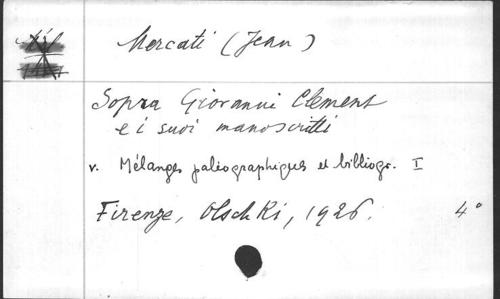 Mercati (Jean)
Sopra Giovanni Clement
e i suoi manoscritti
v. Mélanges paléographiques et bibliogr. I
Firenze, Olschki, 1926. 4°